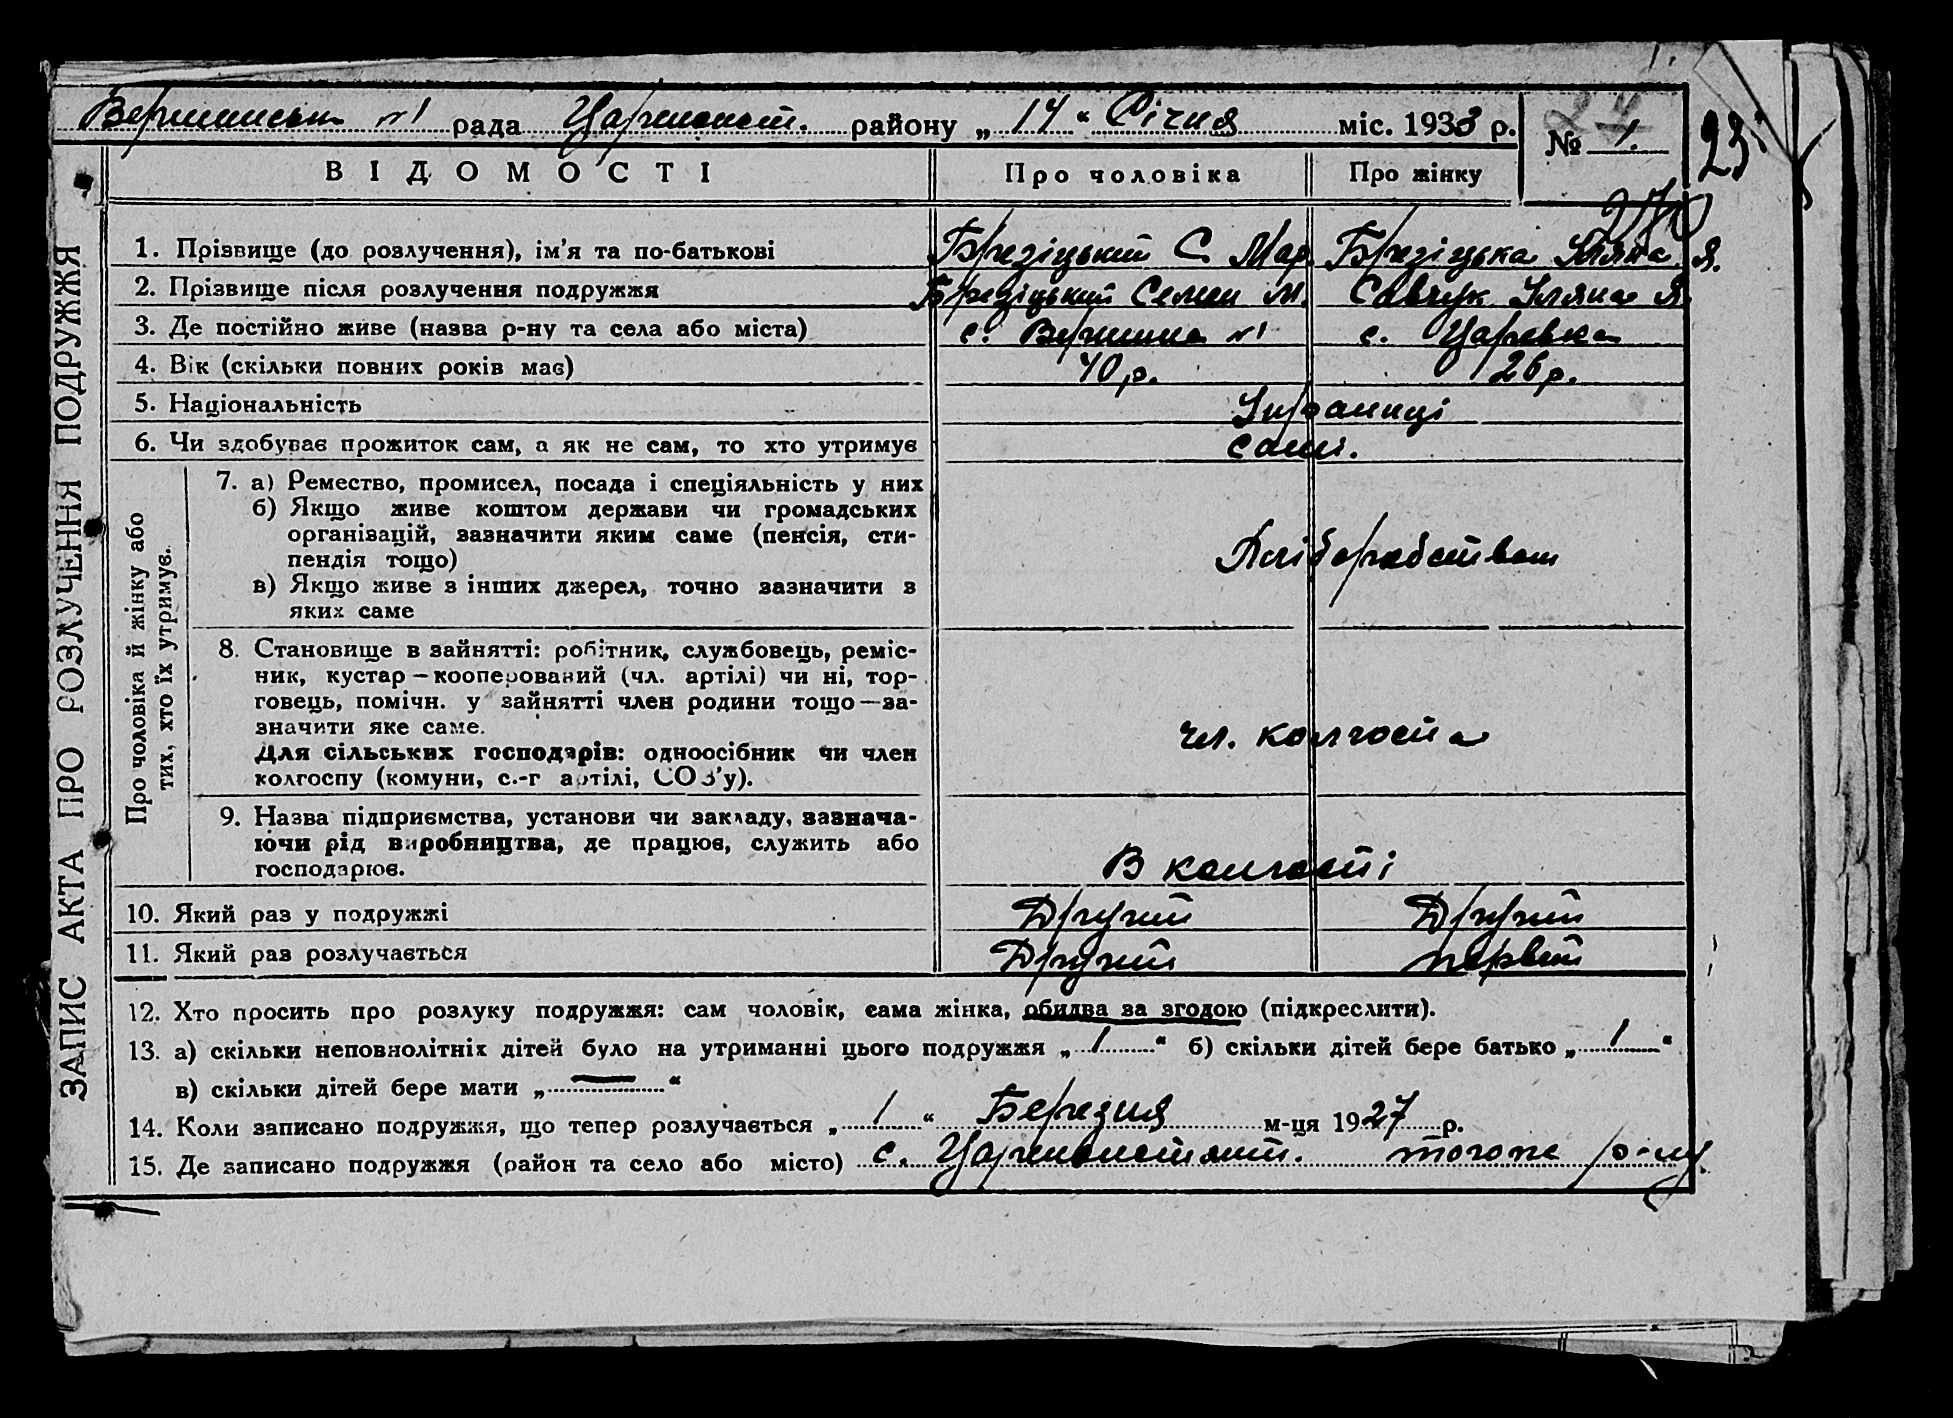 Вершинськ №1 рада Царекопст. району „ 14 “ Січня міс. 1933 р.
№ 1.
23
ЗАПИС АКТА ПРО РОЗЛУЧЕННЯ ПОДРУЖЖЯ
ВІДОМОСТІ Про чоловіка Про жінку
1. Прізвище (до розлучення), ім’я та по-батькові Брезіцький С. Мар. Брезіцька Уляна Я.
2. Прізвище після розлучення подружжя Брезіцький Семен М. Савчук Уляна Я.
3. Де постійно живе (назва р-ну та села або міста) с. Вершина №1 с. Царевка
4. Вік (скільки повних років має) 40 р. 26 р.
5. Національність Українці
6. Чи здобуває прожиток сам, а як не сам, то хто утримує самі.
Про чоловіка й жінку або
тих, хто їх утримує.
7. а) Ремество, промисел, посада і спеціяльність у них
б) Якщо живе коштом держави чи громадських
організацій, зазначити яким саме (пенсія, сти-
пендія тощо)
Хліборобством
в) Якщо живе з інших джерел, точно зазначити з
яких саме
8. Становище в зайнятті: робітник, службовець, реміс-
ник, кустар — кооперований (чл. артілі) чи ні, тор-
говець, помічн. у зайнятті член родини тощо — за-
значити яке саме.
чл. колгоспа
Для сільських господарів: одноосібник чи член
колгоспу (комуни, с.-г артілі, СОЗ’у).
9. Назва підприємства, установи чи закладу, зазнача-
ючи рід виробництва, де працює, служить або
господарює. В колгоспі
10. Який раз у подружжі Другий Другий
11. Який раз розлучається Другий первий
12. Хто просить про розлуку подружжя: сам чоловік, сама жінка, обидва за згодою (підкреслити).
13. а) скільки неповнолітніх дітей було на утриманні цього подружжя „ 1 “ б) скільки дітей бере батько „ 1 “
в) скільки дітей бере мати „ — “
14. Коли записано подружжя, що тепер розлучається „ 1 “ Березня м-ця 1927 р.
15. Де записано подружжя (район та село або місто) с. тогож р-ну.